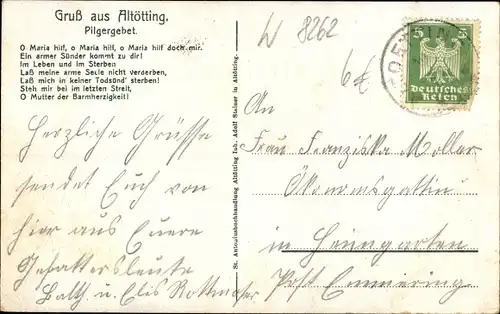 Gruß aus Altötting.
Pilgergebet.
O Maria hilf, o Maria hilf, o Maria hilf doch mir.
Ein armer Sünder kommt zu dir!
Im Leben und im Sterben
Laß meine arme Seele nicht verderben,
Laß mich in keiner Todsünd' sterben!
Steh mir bei im letzten Streit,
O Mutter der Barmherzigkeit!
Herzliche Grüsse
sendet Euch von
hier aus Euere
Gevattersleute
Balth. u. Elis Rottmoser
St. Antoniusbuchhandlung Altötting Inh. Adolf Steiner in Altötting.
W 8262
6€
5 5
Deutsches
Reich
An
Frau Franziska Moller
Ökonomsgattin
in Heimgarten
Post Emmering